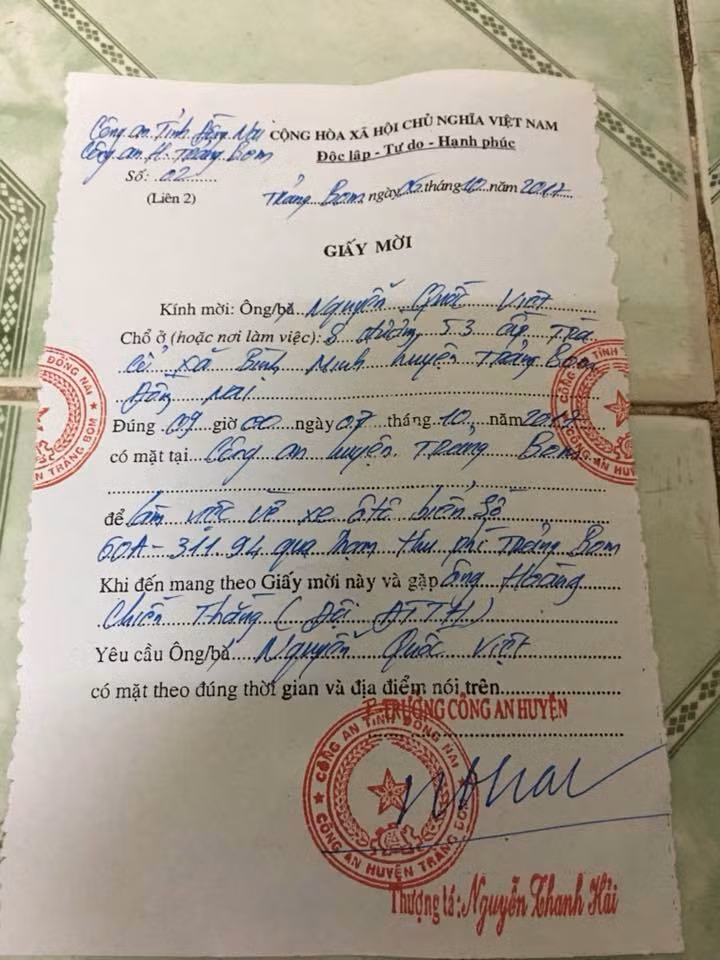 Công an Tỉnh Đồng Nai CỘNG HÒA XÃ HỘI CHỦ NGHĨA VIỆT NAM
Công an H. Trảng Bom Độc lập - Tự do - Hạnh phúc
Số: 02
(Liên 2) Trảng Bom, ngày 06 tháng 10 năm 2017
GIẤY MỜI
Kính mời: Ông/bà Nguyễn Quốc Việt
Chổ ở (hoặc nơi làm việc): 8 đường 53 ấp Trà
Cổ xã Bình Minh huyện Trảng Bom
Đồng Nai
Đúng 09 giờ 00 ngày 07 tháng 10 năm 2017
có mặt tại Công an huyện Trảng Bom
để làm việc về xe ôtô biển số
60A-311.94 qua trạm thu phí Trảng Bom
Khi đến mang theo Giấy mời này và gặp ông Hoàng
Chiến Thắng (Đội ĐTTH)
Yêu cầu Ông/bà Nguyễn Quốc Việt
có mặt theo đúng thời gian và địa điểm nói trên
TRƯỞNG CÔNG AN HUYỆN
CÔNG AN TỈNH ĐỒNG NAI
CÔNG AN HUYỆN TRẢNG BOM
Thượng tá: Nguyễn Thanh Hải